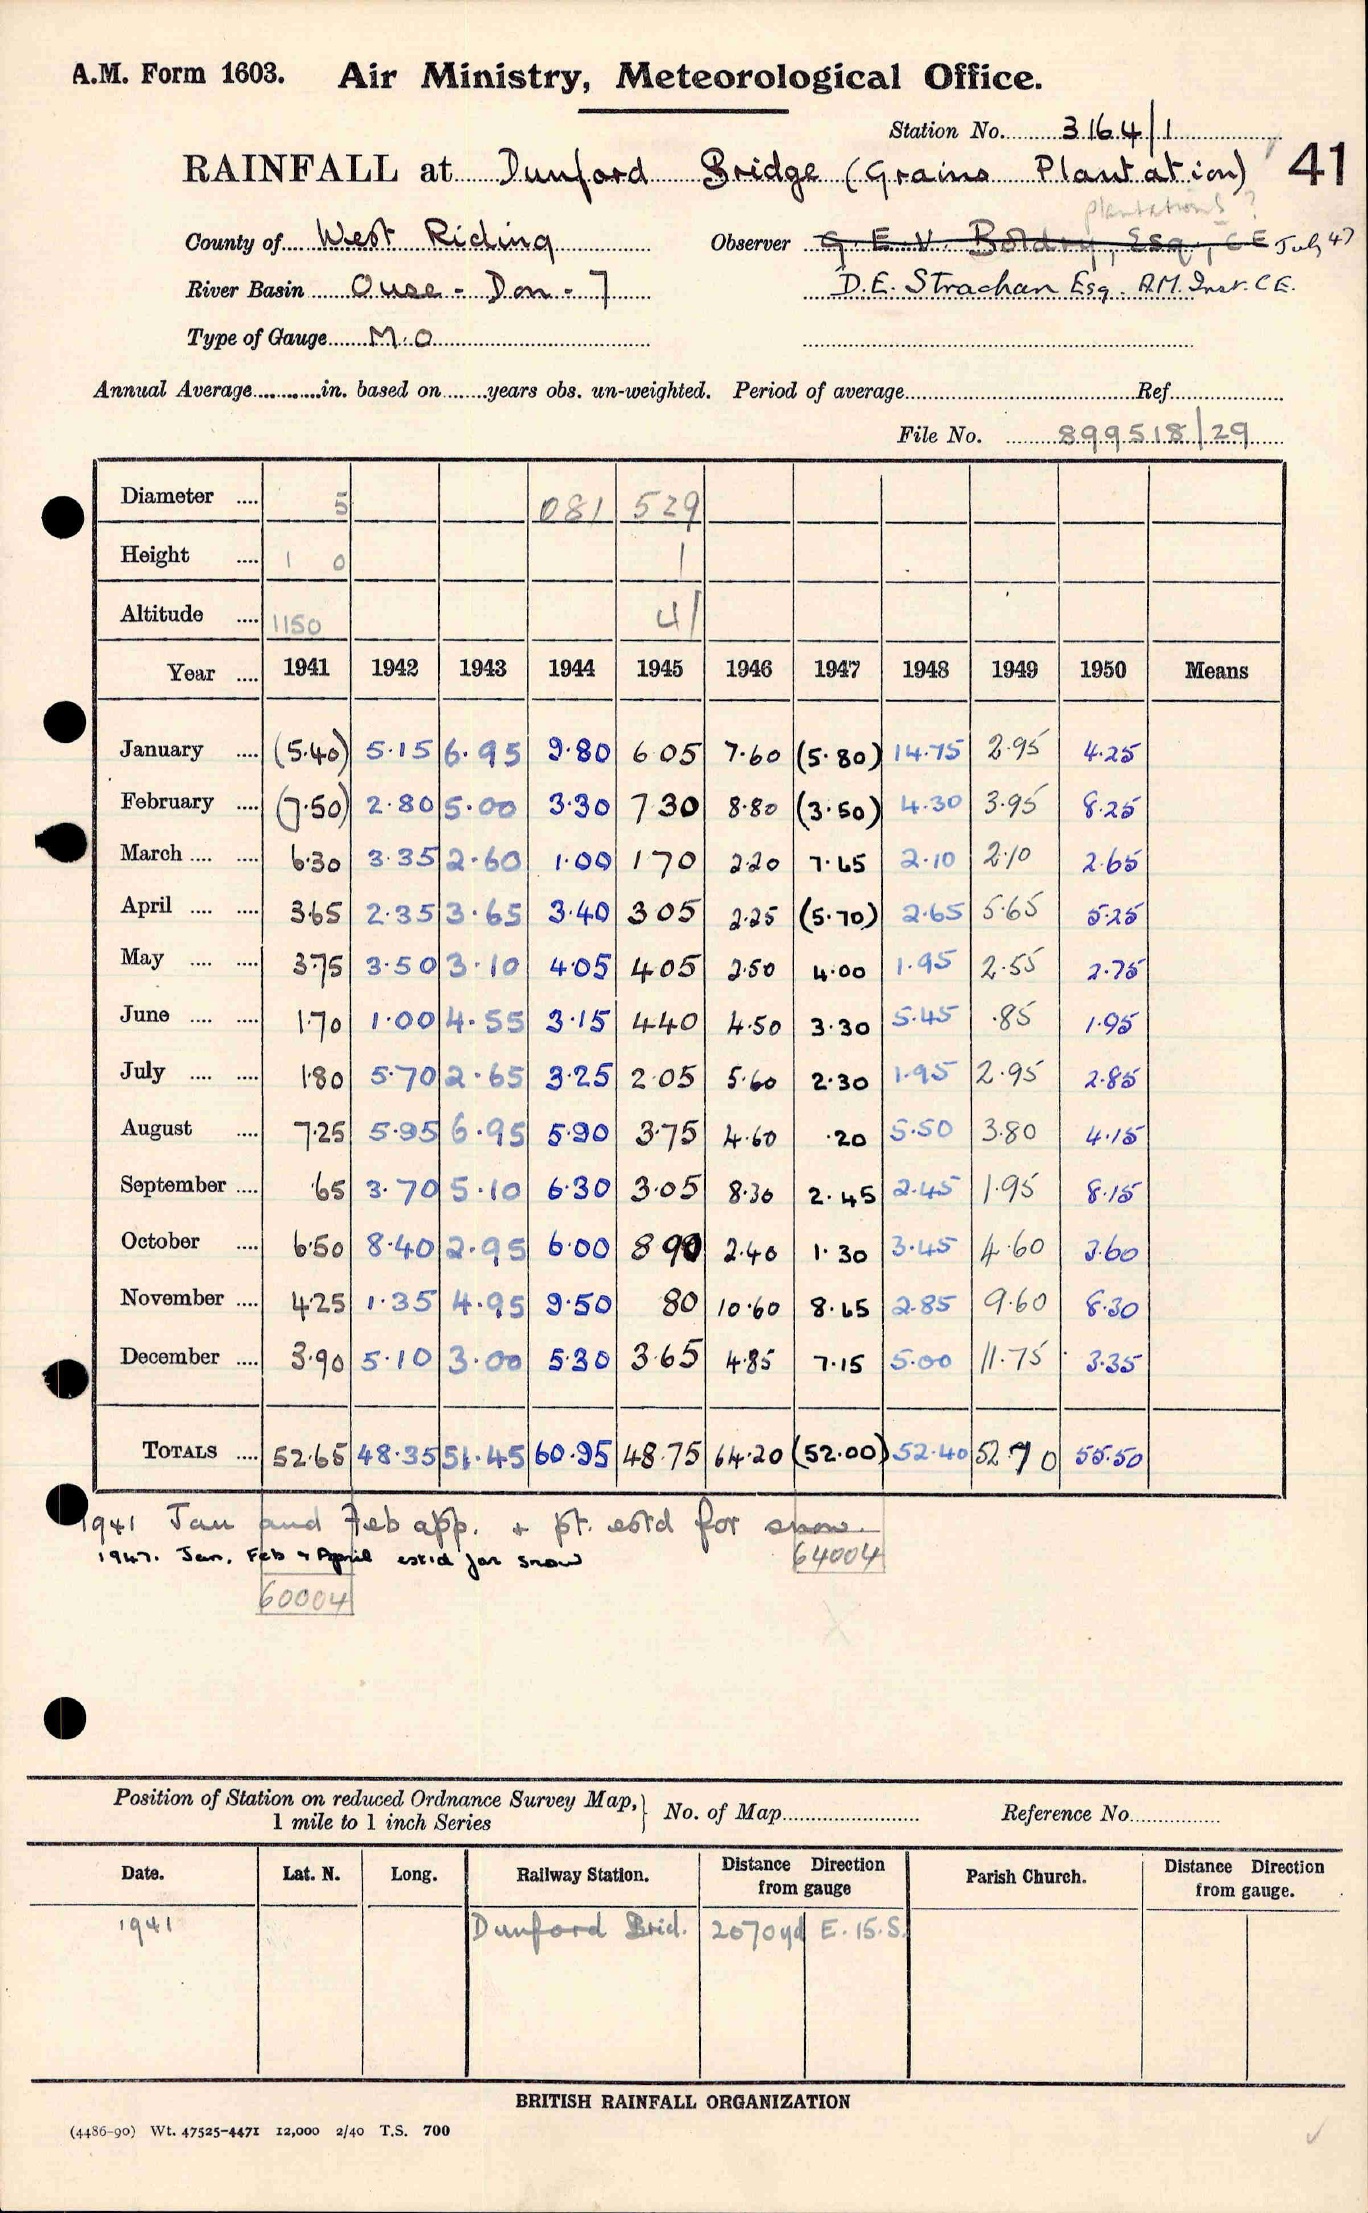 A.M. Form 1603. Air Ministry, Meteorological Office.
Station No. 3164/1
RAINFALL at Dunford Bridge (Grains Plantation) 41
plantations?
County of West Riding Observer G. E. V. Boldry, Esq., C E July 47
River Basin Ouse - Don - 7 D.E. Strachan Esq. A.M. Inst. C E.
Type of Gauge M.O
Annual Average in. based on years obs. un-weighted. Period of average Ref.
File No. 899518/29
Diameter 5 081 529
Height 1 0 1
Altitude 1150 41
Year 1941 1942 1943 1944 1945 1946 1947 1948 1949 1950 Means
January (5.40) 5.15 6.95 9.80 6 05 7.60 (5.80) 14.75 2.95 4.25
February (7.50) 2.80 5.00 3.30 7 30 8.80 (3.50) 4.30 3.95 8.25
March 6.30 3.35 2.60 1.00 1 70 2.20 7.65 2.10 2.10 2.65
April 3.65 2.35 3.65 3.40 3 05 2.25 (5.70) 2.65 5.65 5.25
May 3.75 3.50 3.10 4.05 4.05 2.50 4.00 1.95 2.55 2.75
June 1.70 1.00 4.55 3.15 4.40 4.50 3.30 5.45 .85 1.95
July 1.80 5.70 2.65 3.25 2.05 5.60 2.30 1.95 2.95 2.85
August 7.25 5.95 6.95 5.90 3.75 4.60 .20 5.50 3.80 4.15
September .65 3.70 5.10 6.30 3.05 8.30 2.45 2.45 1.95 8.15
October 6.50 8.40 2.95 6.00 8 90 2.40 1.30 3.45 4.60 3.60
November 4.25 1.35 4.95 9.50 80 10.60 8.65 2.85 9.60 8.30
December 3.90 5.10 3.00 5.30 3.65 4.85 7.15 5.00 11.75 3.35
TOTALS 52.65 48.35 51.45 60.95 48.75 64.20 (52.00) 52.40 52.70 55.50
1941 Jan and Feb app. + pt. estd for snow.
1947. Jan, Feb & April est'd for snow 64004
60004
Position of Station on reduced Ordnance Survey Map, 1 mile to 1 inch Series } No. of Map Reference No.
Date. Lat. N. Long. Railway Station. Distance Direction from gauge Parish Church. Distance Direction from gauge.
1941 Dunford Brid. 2070yd E. 15. S.
BRITISH RAINFALL ORGANIZATION
(4486-90) Wt. 47525-4471 12,000 2/40 T.S. 700